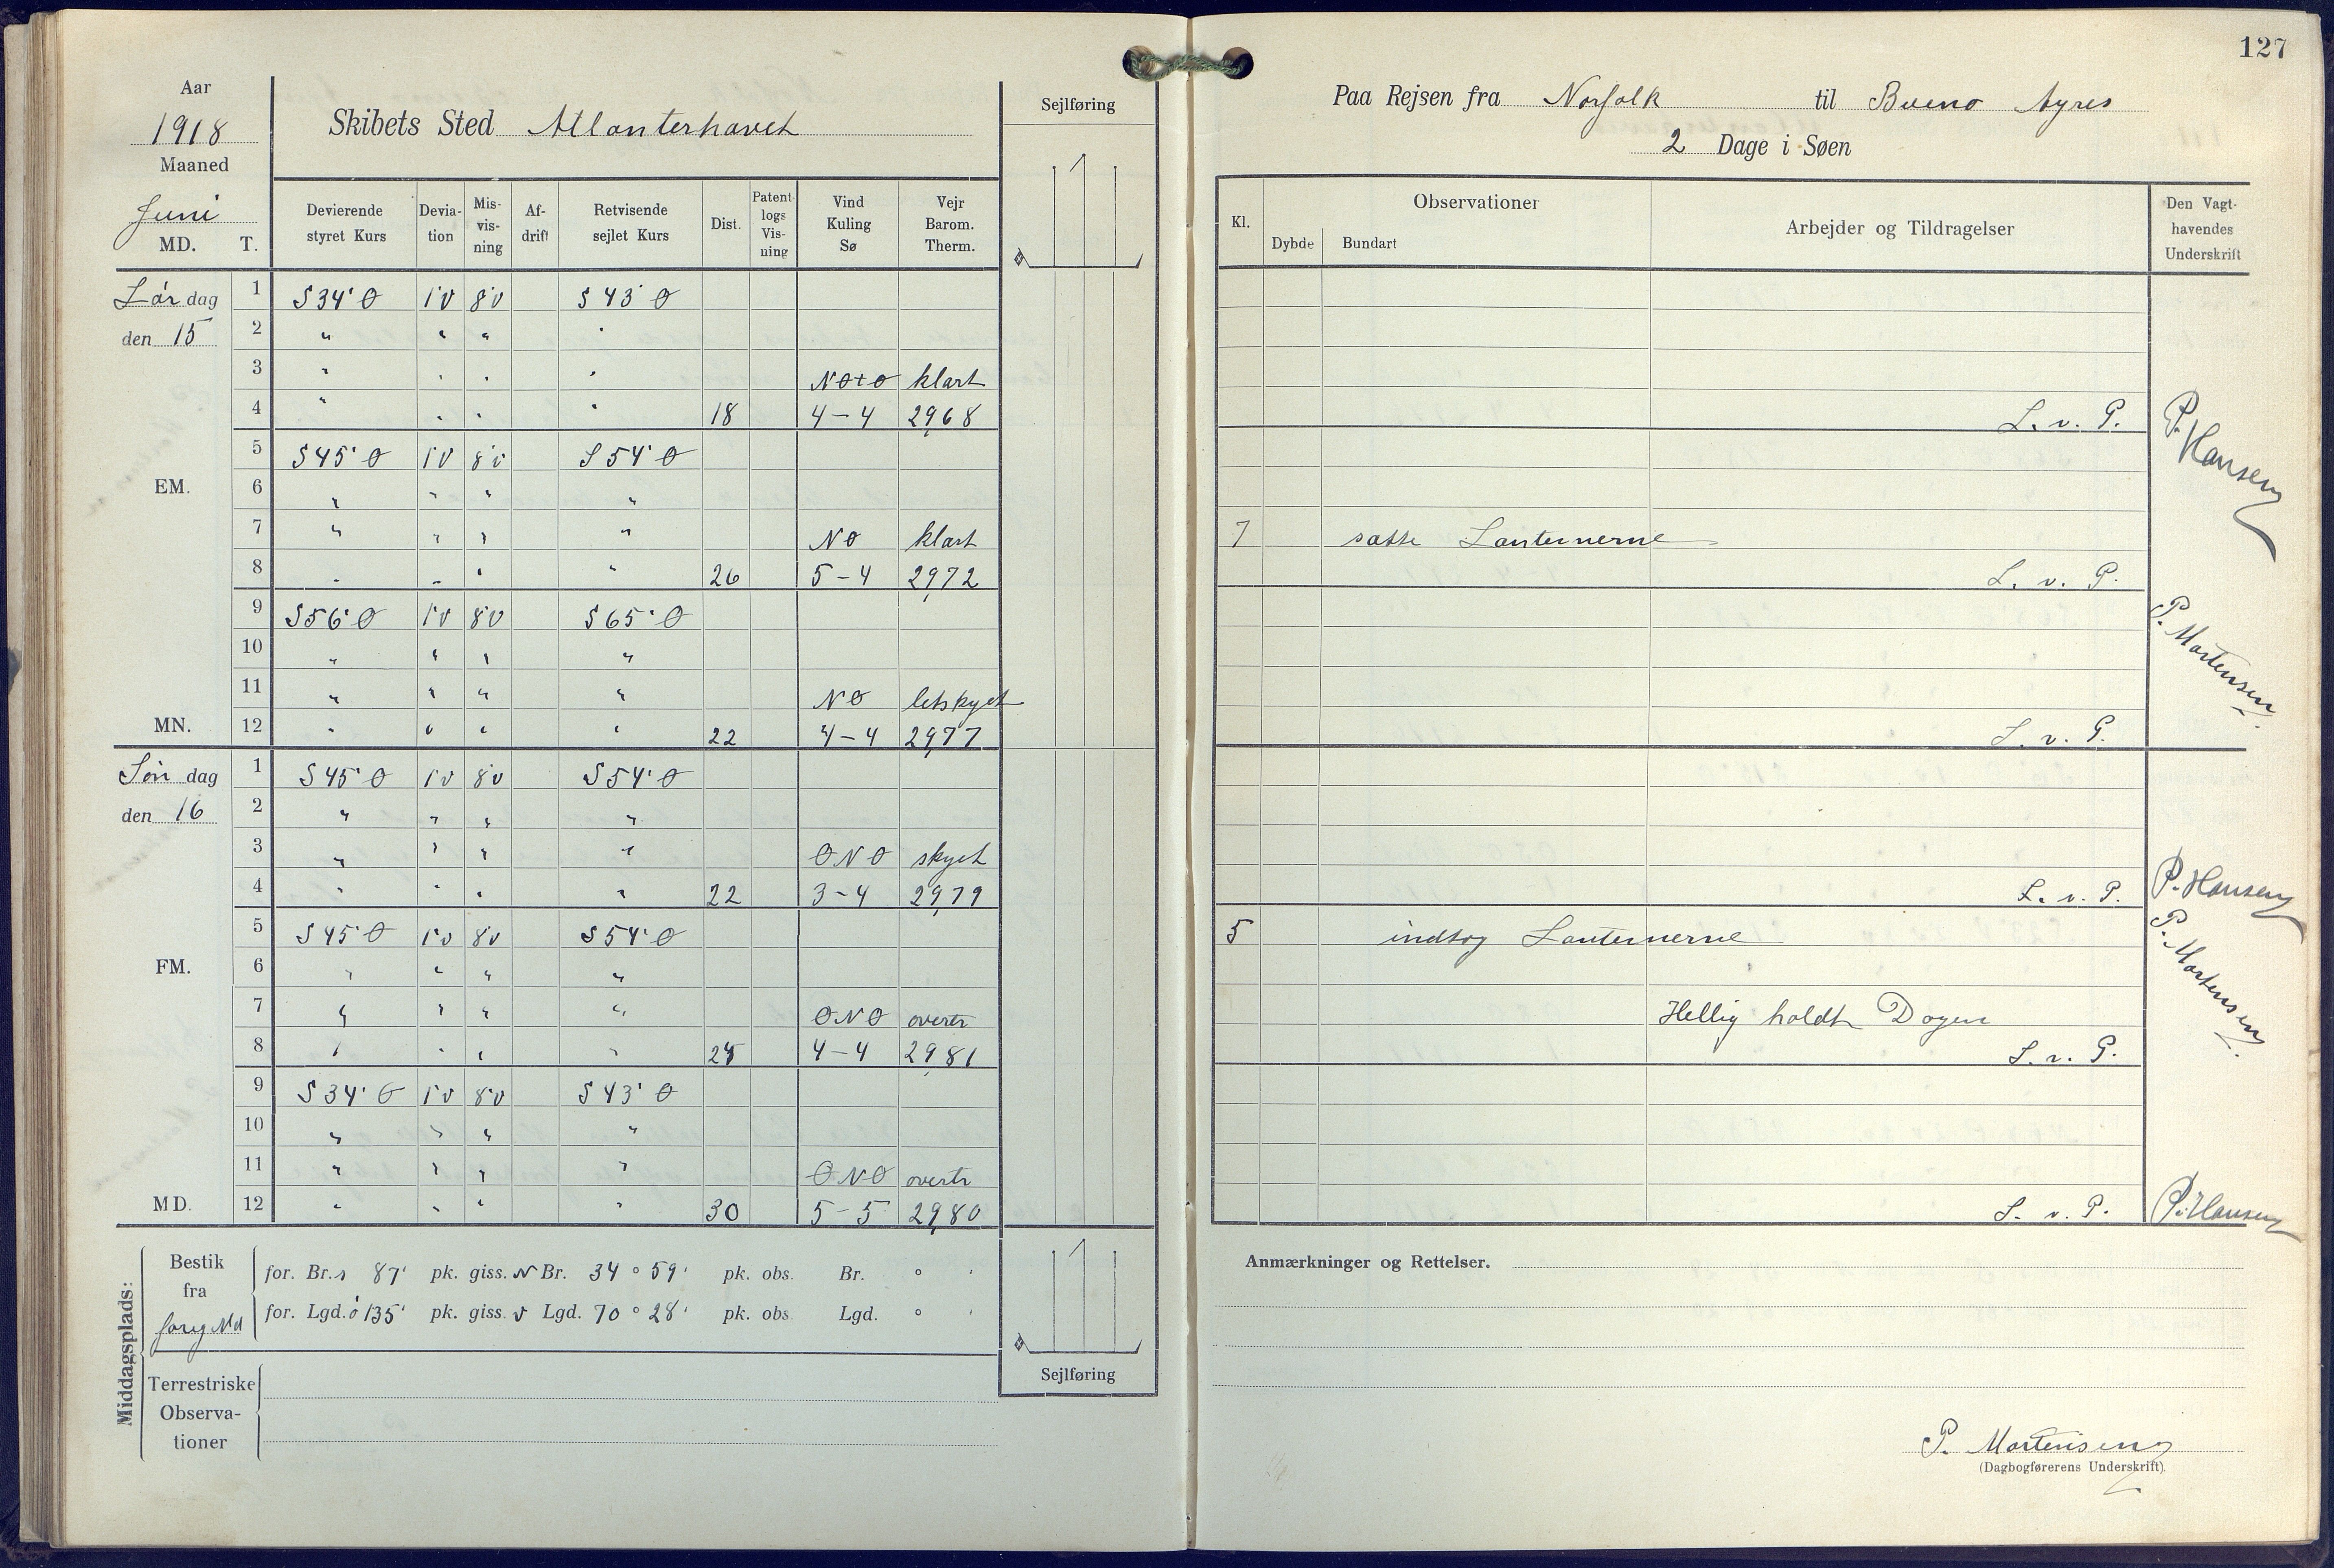 127
Aar
1918
Maaned
Juni
MD. T.
Skibets Sted Atlanterhavet
Sejlføring
Devierende styret Kurs
Devia- tion
Mis- vis- ning
Af- drift
Retvisende sejlet Kurs
Dist.
Patent- logs Vis- ning
Vind Kuling Sø
Vejr Barom. Therm.
Lør dag 1 S 34° O 1°V 8°V S 43° O
den 15 2 " " " "
3 " " " " NOtO klart
4 " " " " 18 4-4 29,68
5 S 45° O 1°V 8°V S 54° O
EM. 6 " " " "
7 " " " " NO klart
8 " " " " 26 5-4 29,72
9 S 56° O 1°V 8°V S 65° O
10 " " " "
11 " " " " NO letskyet
MN. 12 " " " " 22 4-4 29,77
Søn dag 1 S 45° O 1°V 8°V S 54° O
den 16 2 " " " "
3 " " " " ONO skyet
4 " " " " 22 3-4 29,79
5 S 45° O 1°V 8°V S 54° O
FM. 6 " " " "
7 " " " " ONO overtr
8 " " " " 4-4 29,81
9 S 34° O 1°V 8°V S 43° O
10 " " " "
11 " " " " ONO overtr
MD. 12 " " " " 30 5-5 29,80
Middagsplads:
Bestik fra
for. Br. s 87' pk. giss. N Br. 34° 59' pk. obs. Br. ° '
for. Lgd. ø 135' pk. giss. v Lgd. 70° 28' pk. obs. Lgd. ° '
Terrestriske Observa- tioner
Sejlføring
Paa Rejsen fra Norfolk til Bueno Ayres
2 Dage i Søen
Kl.
Observationer
Dybde Bundart
Arbejder og Tildragelser
Den Vagt- havendes Underskrift
L. v. P. P. Hansen
7 satte Lanternerne
L. v. P. P. Mortensen
L. v. P.
L. v. P. P. Hansen
5 indtog Lanternerne P. Mortensen
Hellig holdt Dagen
L. v. P.
L. v. P. P. Hansen
Anmærkninger og Rettelser.
P. Mortensen
(Dagbogførerens Underskrift).